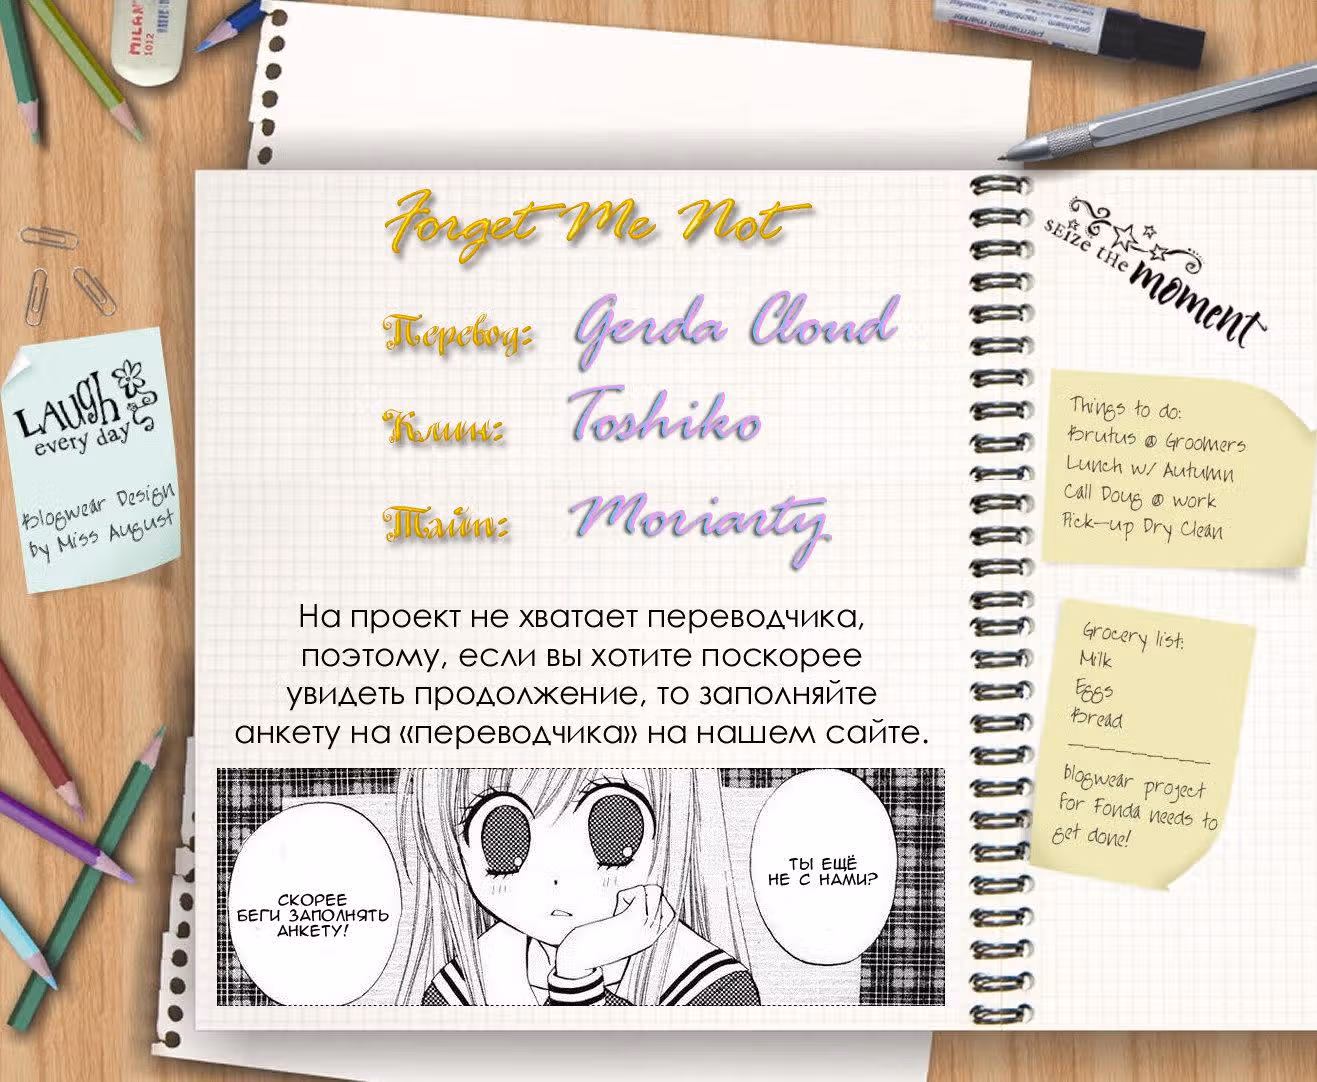 MILAN
1012
permanent marker
Forget Me Not
Перевод: Gerda Cloud
Клин: Toshiko
Тайп: Moriarty
На проект не хватает переводчика,
поэтому, если вы хотите поскорее
увидеть продолжение, то заполняйте
анкету на «переводчика» на нашем сайте.
ТЫ ЕЩЁ
НЕ С НАМИ?
СКОРЕЕ
БЕГИ ЗАПОЛНЯТЬ
АНКЕТУ!
LAUgh
every day
Blogwear Design
by Miss August
sEIzE tHe
moment
Things to do:
Brutus @ Groomers
Lunch w/ Autumn
Call Doug @ work
Pick-up Dry Clean
Grocery list:
Milk
Eggs
Bread
blogwear project
For Fonda needs to
get done!